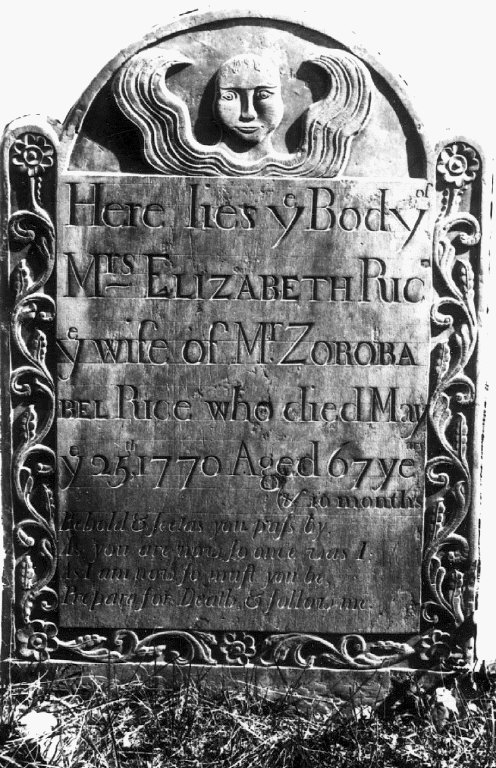 Here lies yͤ Body of
Mrs Elizabeth Rice
yͤ wife of Mr. Zoroba
bel Rice who died May
yͤ 25th 1770 Aged 67 years
& 10 months
Behold & see as you pass by,
As you are now so once was I.
As I am now so must you be,
Prepare for Death & follow me.